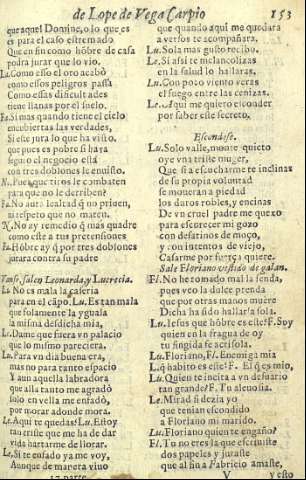 de Lope de Vega Carpio 153
que aquel Domine, o lo que es
es para el caso estremado
Que en fin como hõbre de casa
podra jurar que lo vio.
La. Como esso el oro acabò
como essos peligros passa
Como essas dificultades
tiene llanas por el suelo.
Fa. Si mas quando tiene el cielo
encubiertas las verdades,
Si este jura lo que ha visto.
que pues es pobre si hara
seguro el negocio està
con tres doblones le enuisto.
N. Pues que tires le combaten
para que no le derribe?
Fa. No aura lealtad q̃ no priuen,
ni respeto que no maten.
N. No ay remedio q̃ mas quadre
como este a tus pretensiones
Fa. Hõbre ay q̃ por tres doblones
jurara contra su padre
Vanse, salen Leonarda y Lucrecia.
Le. No es mala la caseria
para en el cãpo. Lu. Es tan mala
que solamente la yguala
la misma desdicha mia,
Le. Dame que fuera vn palacio
que lo mismo pareciera.
Lu. Para vn dia buena era,
mas no para tanto espacio
Y aun aquella labradora
que alla tanto me agradò
solo en vella me enfadò,
por morar adonde mora.
Le. Aqui te quedas? Lu. Estoy
tan triste que me ha de dar
vida hartarme de llorar.
Le. Si te enfado ya me voy,
Aunque de manera viuo
17. parte
que quando aqui me quedara
a versos te acompañara,
Lu. Sola mas gusto recibo.
Le. Si assi te melancolizas
en la salud lo hallaras.
Lu. Con poco viento veras
el fuego entre las cenizas.
Le. Aqui me quiero esconder
por saber este secreto.
Escondese.
Lu. Solo valle, monte quieto
oye vna triste muger,
Que si a escucharme te inclinas
de su propia voluntad
se moueran a piedad
los duros robles, y encinas
De vn cruel padre me quexo
para escorecer mi gozo
con desatinos de moço,
y con intentos de viejo,
Casarme por fuerça quiere.
Sale Floriano vestido de galan.
Fl. No he tomado mal la senda,
pues veo la dulce prenda
que por otras manos muere
Dicha ha sido hallarla sola.
Lu. Iesus que hõbre es este? F. Soy
quien en la fragua de oy
tu fingida fe acrisola.
Lu. Floriano, Fl. Enemiga mia
L. q̃ habito es este? F. El q̃ es mio,
Lu. Quien te incita a vn desuario
tan grande? F. Tu aleuosia.
Le. Mirad si dezia yo
que tenian escondido
a Floriano y Marido.
Lu. Floriano quien te engaño?
Fl. Tu no eres la que escriuiste
dos papeles y juraste
que al fin a Fabricio amaste,
V y esto